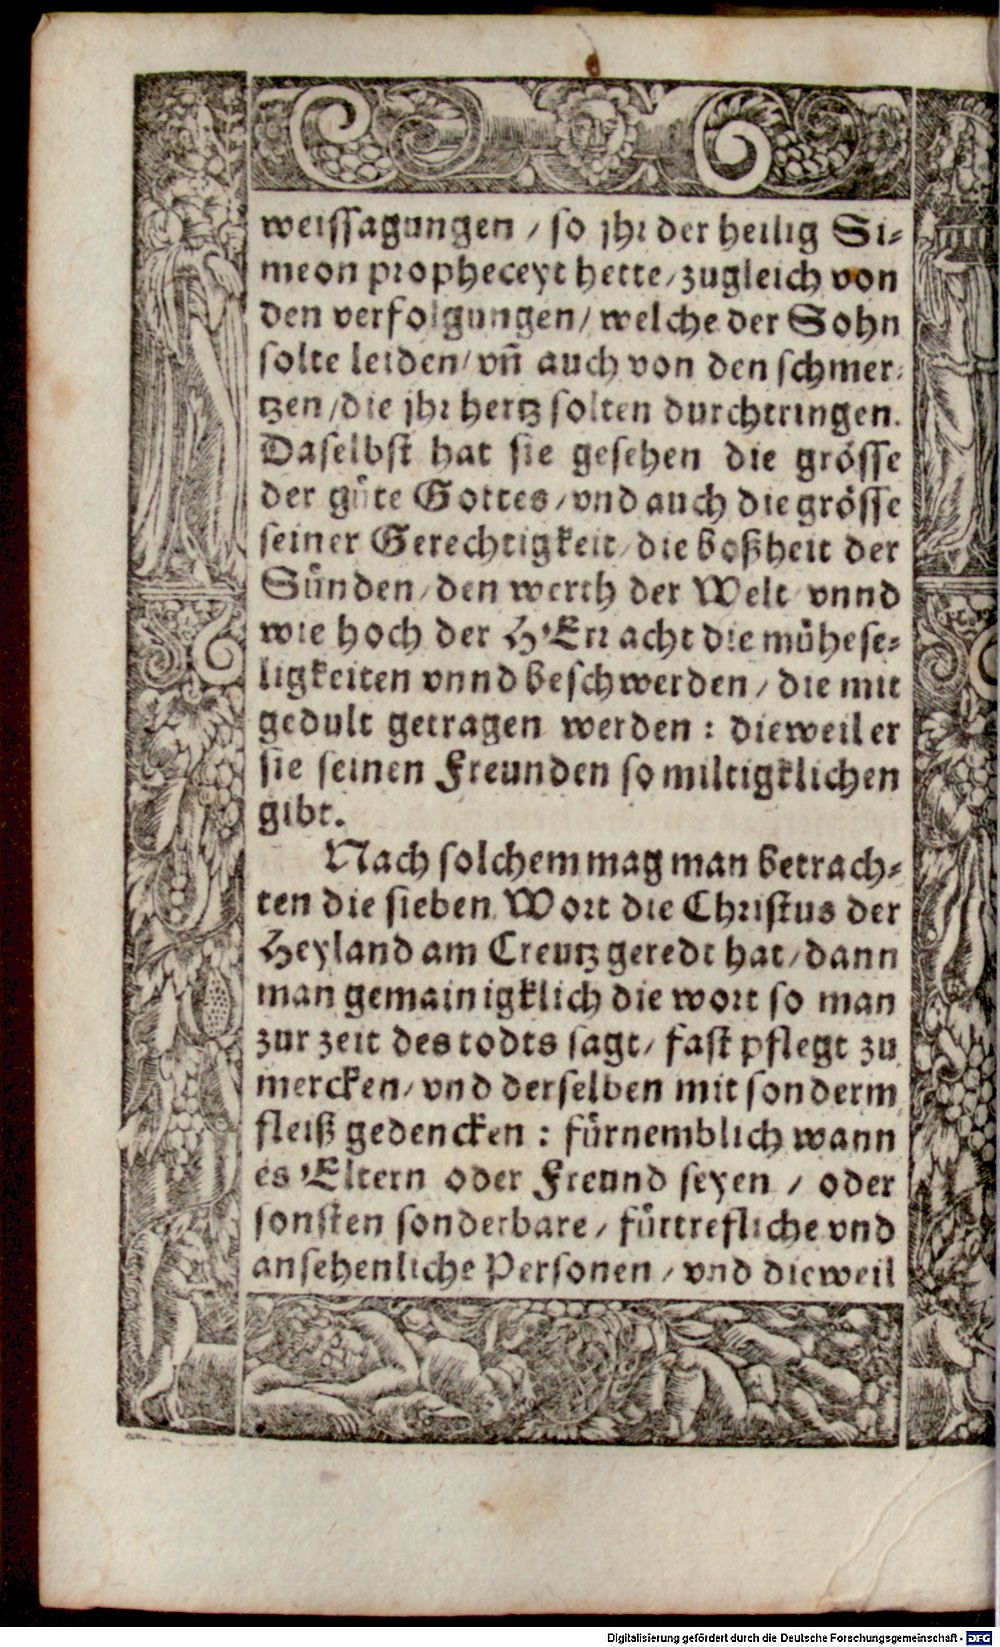 weissagungen / so jhr der heilig Si-
meon propheceyt hette / zugleich von
den verfolgungen / welche der Sohn
solte leiden / vñ auch von den schmer-
tzen / die jhr hertz solten durchtringen.
Daselbst hat sie gesehen die grösse
der güte Gottes / vnd auch die grösse
seiner Gerechtigkeit / die boßheit der
Sünden / den werth der Welt vnnd
wie hoch der HErr acht die mühese-
ligkeiten vnnd beschwerden / die mit
gedult getragen werden : dieweil er
sie seinen Freunden so miltigklichen
gibt.
Nach solchem mag man betrach-
ten die sieben Wort die Christus der
Heyland am Creutz geredt hat / dann
man gemainigklich die wort so man
zur zeit des todts sagt / fast pflegt zu
mercken / vnd derselben mit sonderm
fleiß gedencken : fürnemblich wann
es Eltern oder Freund seyen / oder
sonsten sonderbare / fürtrefliche vnd
ansehenliche Personen / vnd dieweil
Digitalisierung gefördert durch die Deutsche Forschungsgemeinschaft - DFG